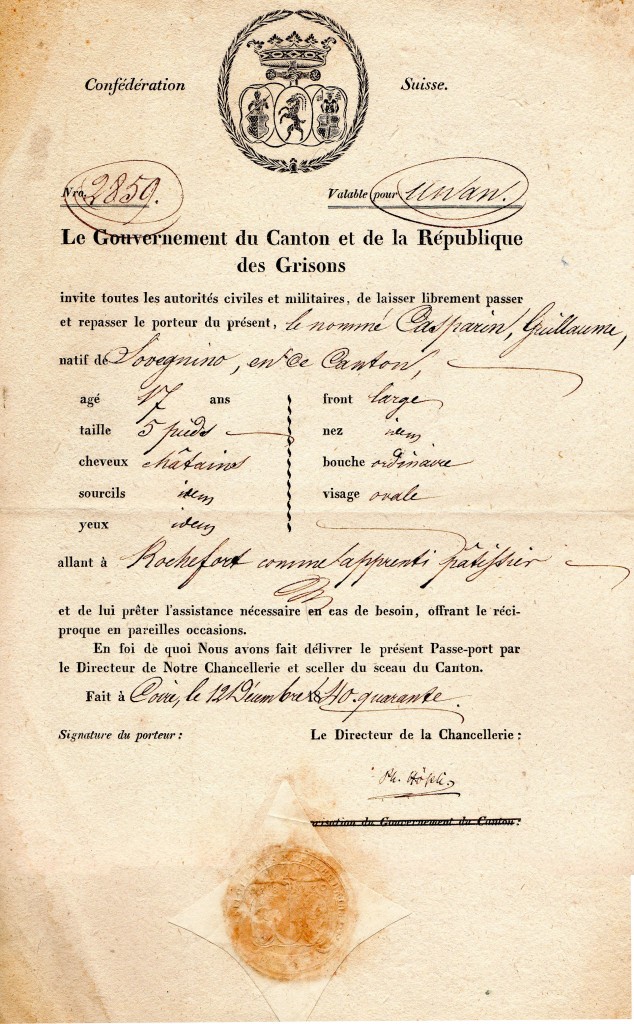 Confédération Suisse.
Nro. 2859. Valable pour un an.
Le Gouvernement du Canton et de la République
des Grisons
invite toutes les autorités civiles et militaires, de laisser librement passer
et repasser le porteur du présent, le nommé Casparin, Guillaume,
natif de Sovegnino, en ce Canton,
agé 17 ans front large
taille 5 pieds nez idem
cheveux châtains bouche ordinaire
sourcils idem visage ovale
yeux idem
allant à Rochefort comme apprenti pâtissier
et de lui prêter l'assistance nécessaire en cas de besoin, offrant le réci-
proque en pareilles occasions.
En foi de quoi Nous avons fait délivrer le présent Passe-port par
le Directeur de Notre Chancellerie et sceller du sceau du Canton.
Fait à Coire, le 12 Décembre 1840. quarante.
Signature du porteur : Le Directeur de la Chancellerie :
du Gouvernement du Canton: